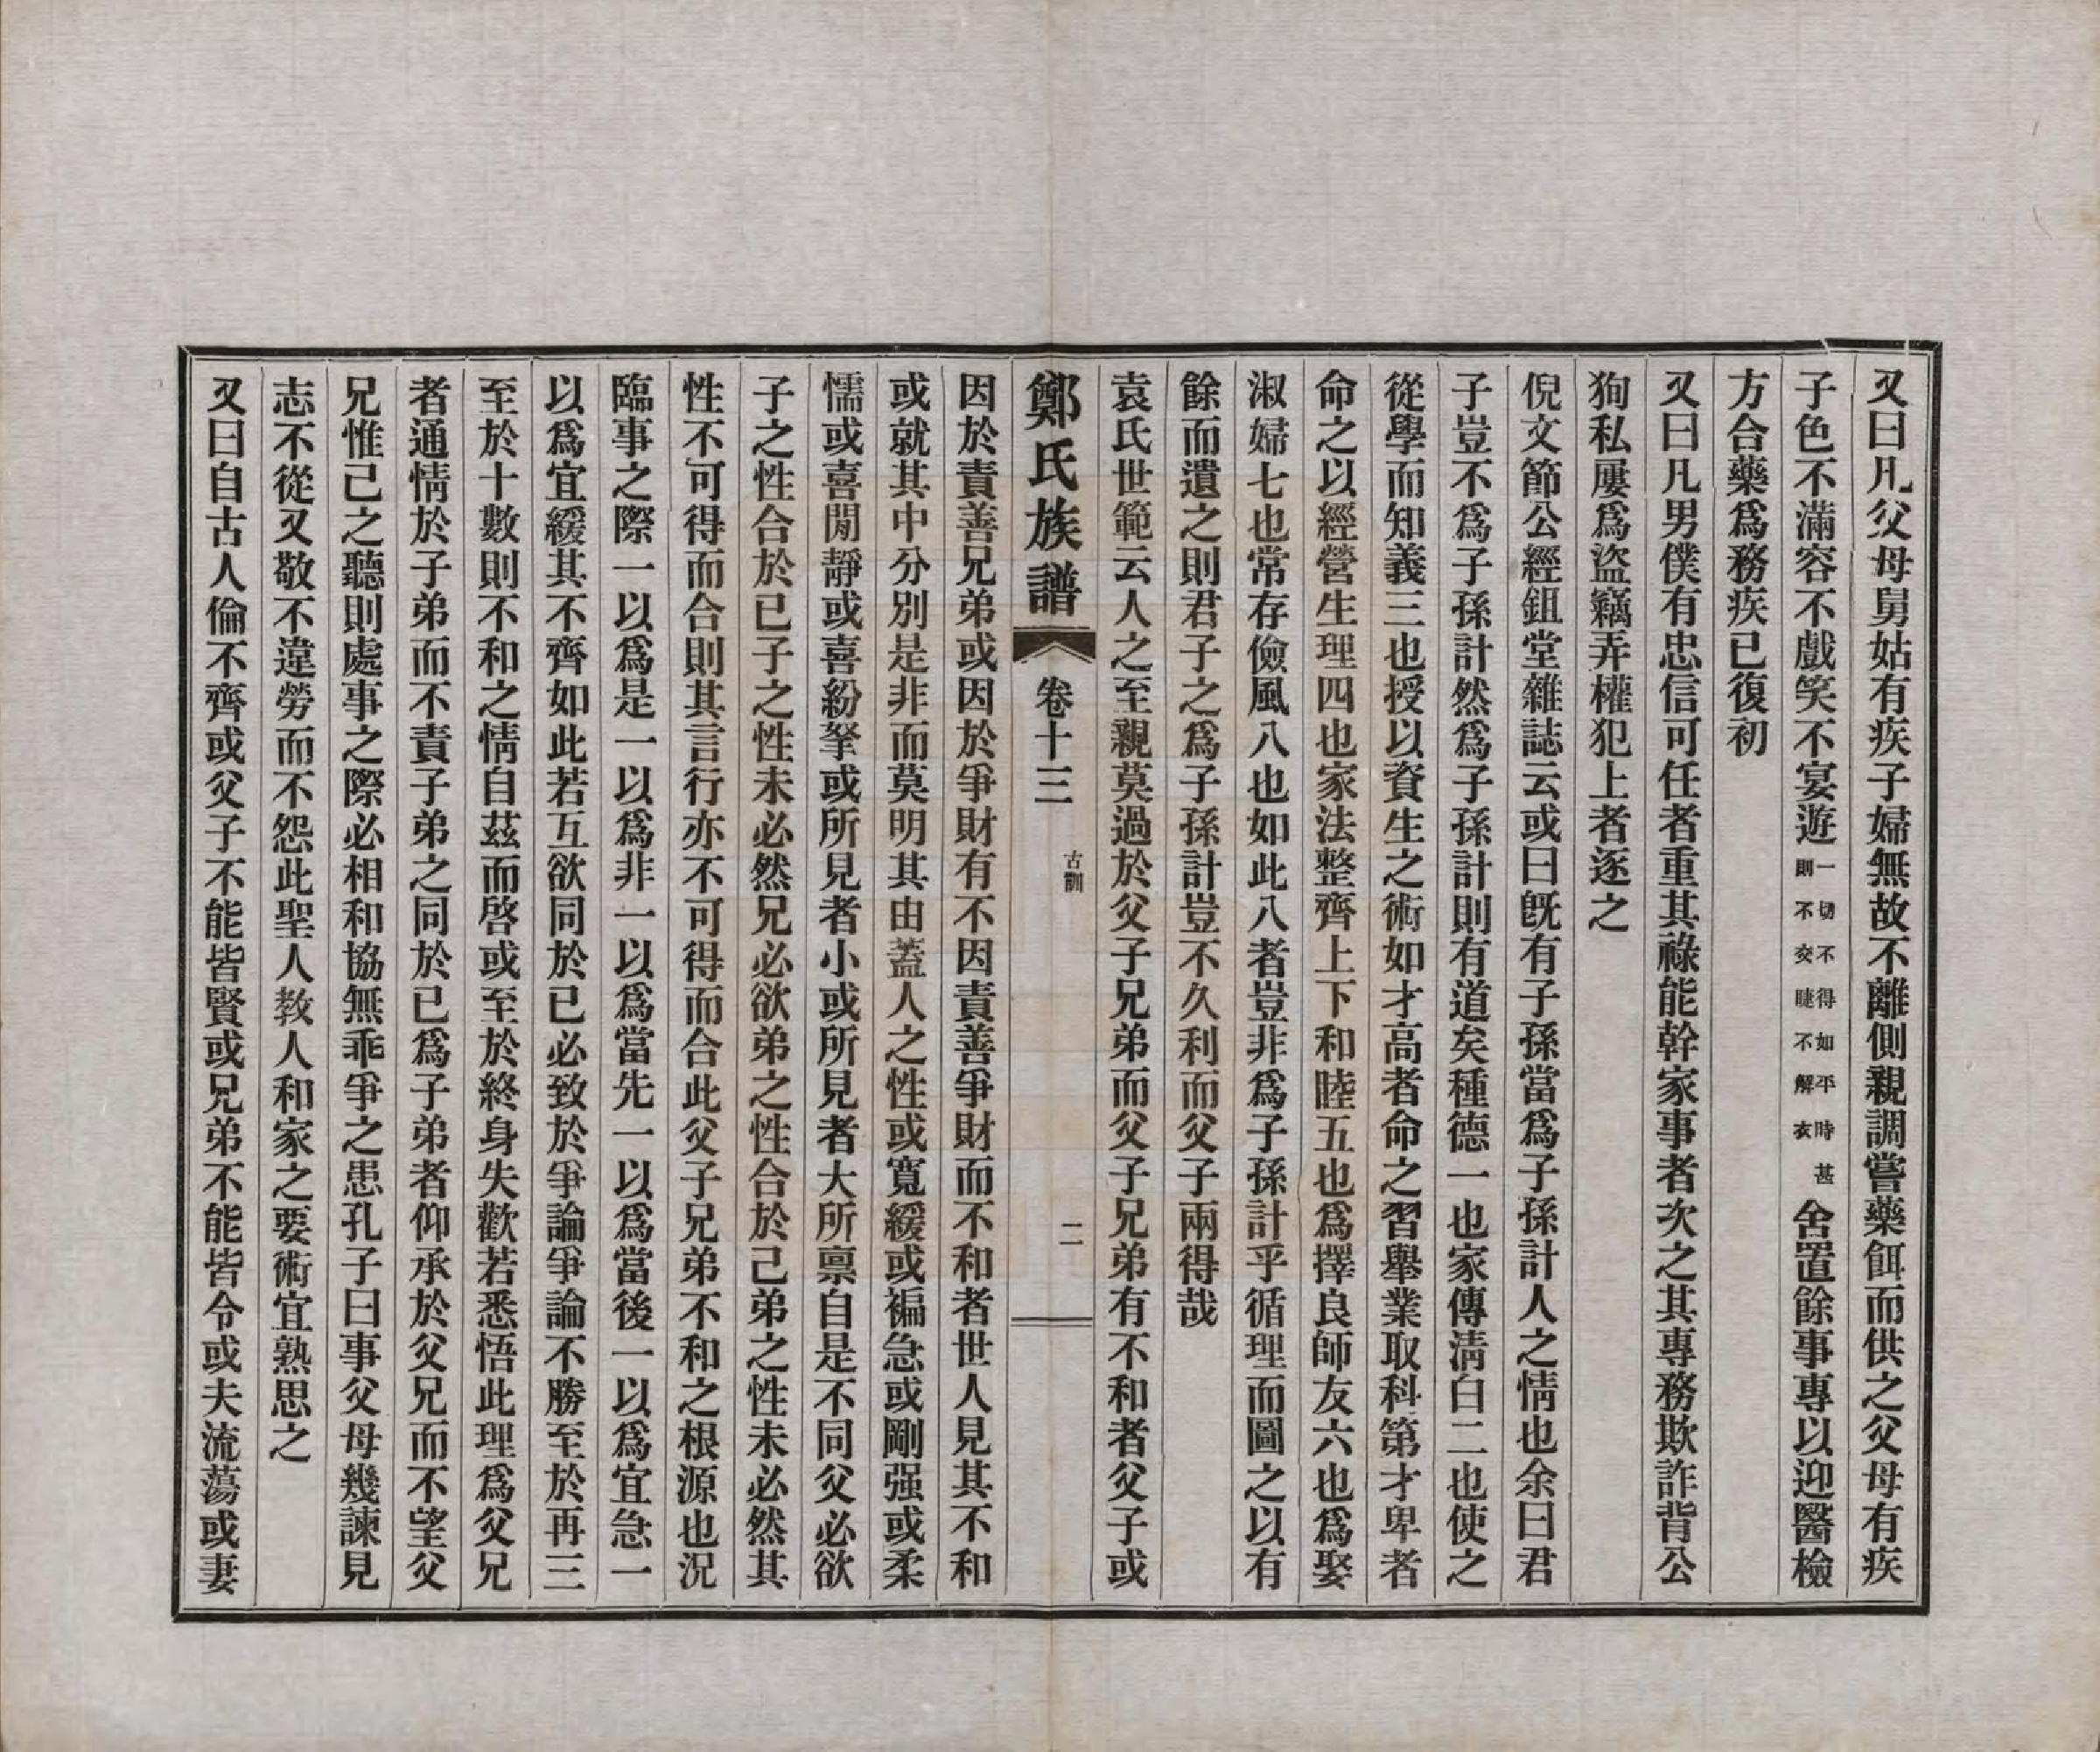 又曰凡父母舅姑有疾子婦無故不離側親調嘗藥餌而供之父母有疾
子色不滿容不戲笑不宴遊一切不得如平時甚則不交睫不解衣舍置餘事專以迎醫檢
方合藥爲務疾已復初
又曰凡男僕有忠信可任者重其祿能幹家事者次之其專務欺詐背公
狥私屢爲盜竊弄權犯上者逐之
倪文節公經鉏堂雜誌云或曰旣有子孫當爲子孫計人之情也余曰君
子豈不爲子孫計然爲子孫計則有道矣種德一也家傳淸白二也使之
從學而知義三也授以資生之術如才高者命之習舉業取科第才卑者
命之以經營生理四也家法整齊上下和睦五也爲擇良師友六也爲娶
淑婦七也常存儉風八也如此八者豈非爲子孫計乎循理而圖之以有
餘而遺之則君子之爲子孫計豈不久利而父子兩得哉
袁氏世範云人之至親莫過於父子兄弟而父子兄弟有不和者父子或
鄭氏族譜 卷十三 古訓 二
因於責善兄弟或因於爭財有不因責善爭財而不和者世人見其不和
或就其中分別是非而莫明其由蓋人之性或寬緩或褊急或剛强或柔
懦或喜閒靜或喜紛挐或所見者小或所見者大所禀自是不同父必欲
子之性合於已子之性未必然兄必欲弟之性合於己弟之性未必然其
性不可得而合則其言行亦不可得而合此父子兄弟不和之根源也況
臨事之際一以爲是一以爲非一以爲當先一以爲當後一以爲宜急一
以爲宜緩其不齊如此若互欲同於已必致於爭論爭論不勝至於再三
至於十數則不和之情自茲而啓或至於終身失歡若悉悟此理爲父兄
者通情於子弟而不責子弟之同於已爲子弟者仰承於父兄而不望父
兄惟己之聽則處事之際必相和協無乖爭之患孔子曰事父母幾諫見
志不從又敬不違勞而不怨此聖人教人和家之要術宜熟思之
又曰自古人倫不齊或父子不能皆賢或兄弟不能皆令或夫流蕩或妻